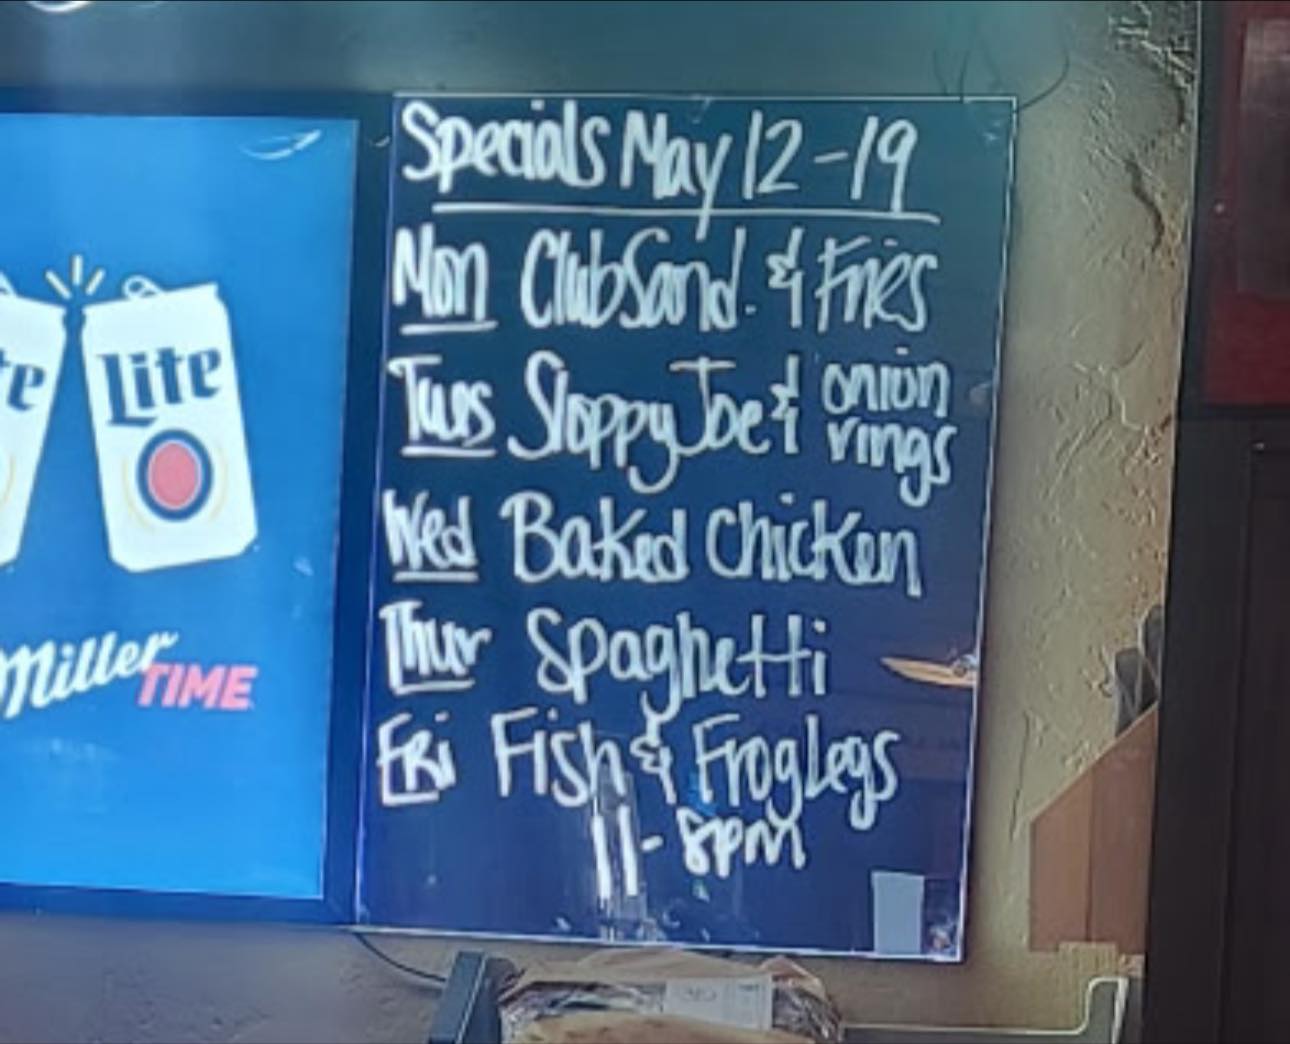 Specials May 12-19
Mon Club Sand. & Fries
Tues Sloppy Joe & onion rings
Wed Baked Chicken
Thur Spaghetti
Fri Fish & Frog Legs
11-8pm
te
Lite
Miller
TIME